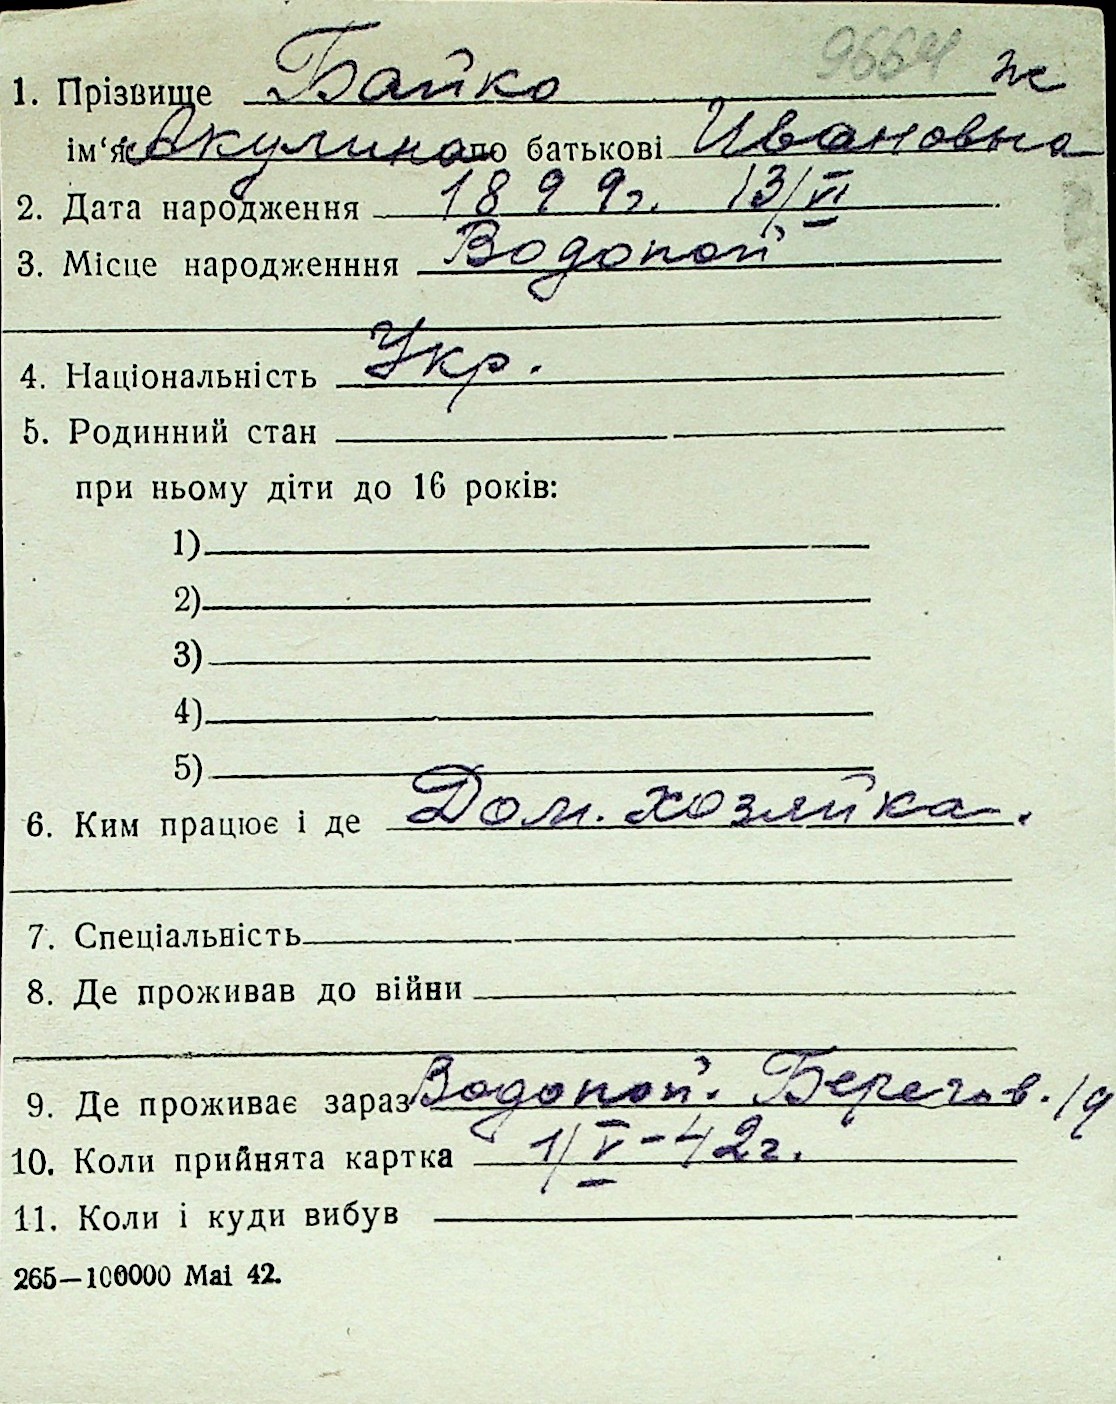 9664
1. Прізвище Байко ж
ім'я Акулина по батькові Ивановна
2. Дата народження 1899г. 13/VI
3. Місце народженння Водопой
4. Національність Укр.
5. Родинний стан
при ньому діти до 16 років:
1)
2)
3)
4)
5)
6. Ким працює і де Дом. хозяйка.
7. Спеціальність
8. Де проживав до війни
9. Де проживає зараз Водопой. Берегов. 19
10. Коли прийнята картка 1/V-42г.
11. Коли і куди вибув
265—100000 Mai 42.